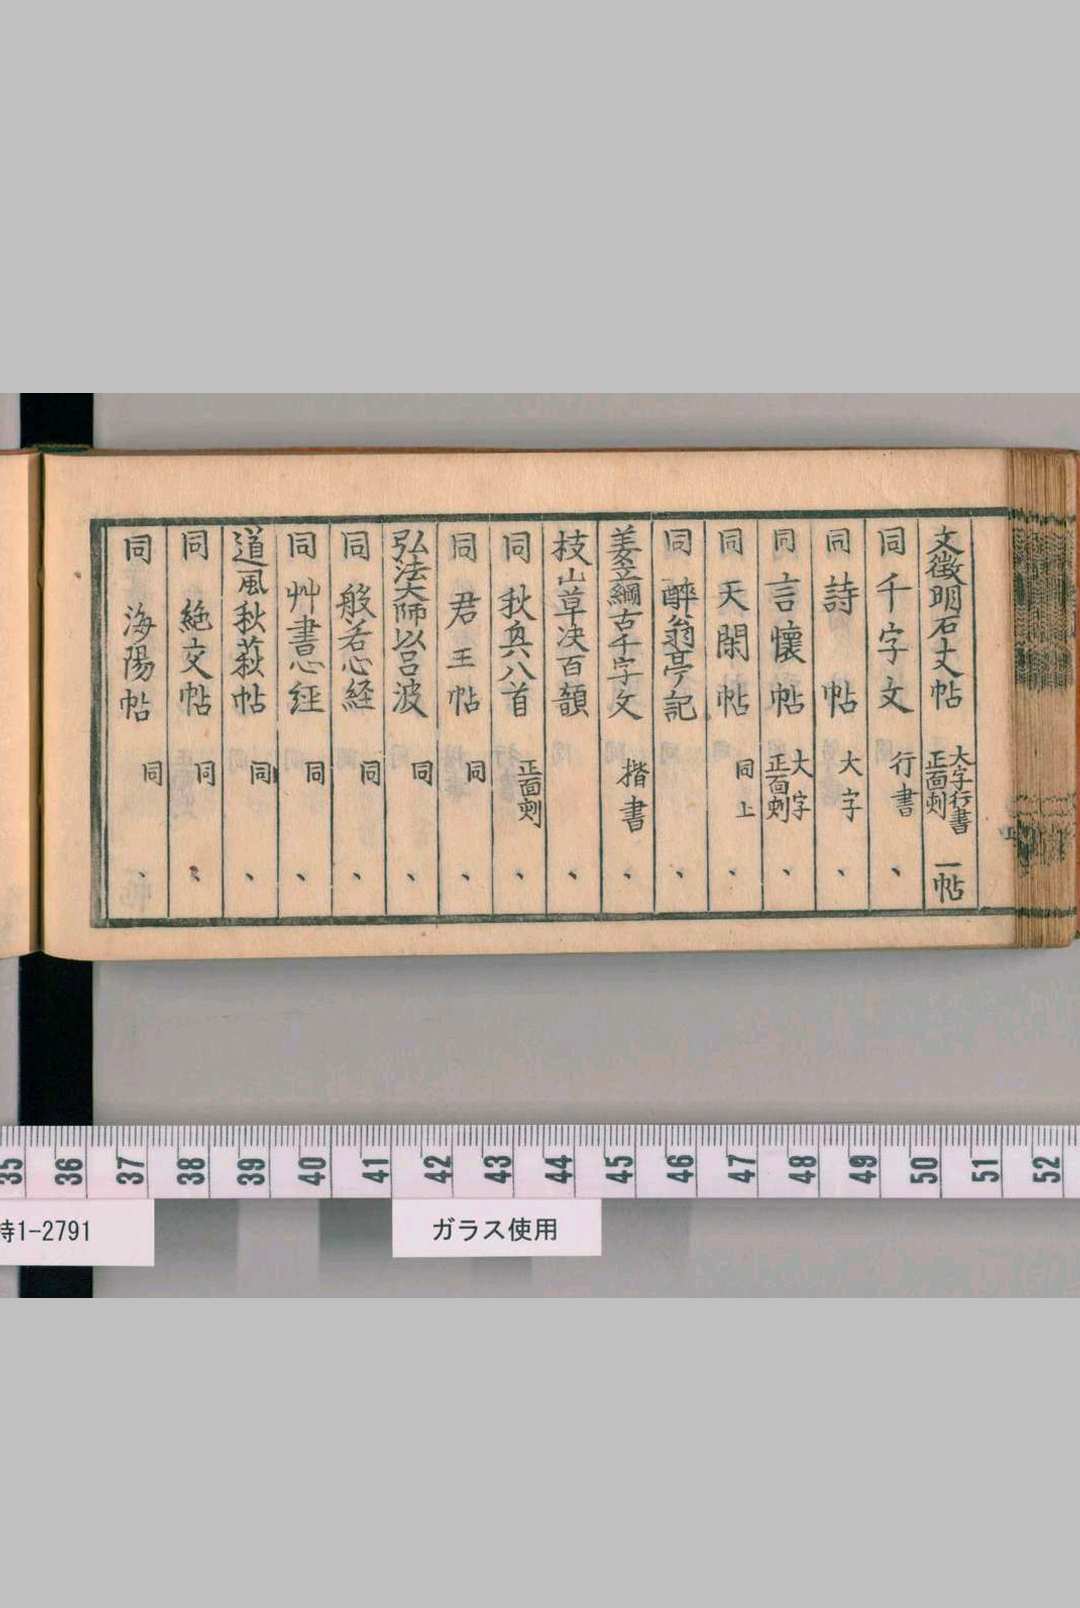 文徴明石丈帖 大字行書 正面刻 一帖
同千字文 行書 、
同詩帖 大字 、
同言懐帖 大字 正面刻 、
同天閑帖 同上 、
同酔翁亭記 、
姜立綱古千字文 揩書 、
枝山草决百韻 、
同秋興八首 正面刻 、
同君王帖 同 、
弘法大師以呂波 同 、
同般若心経 同 、
同艸書心経 同 、
道風秋萩帖 同 、
同絶交帖 同 、
同海陽帖 同 、
35 36 37 38 39 40 41 42 43 44 45 46 47 48 49 50 51 52
特1-2791
ガラス使用